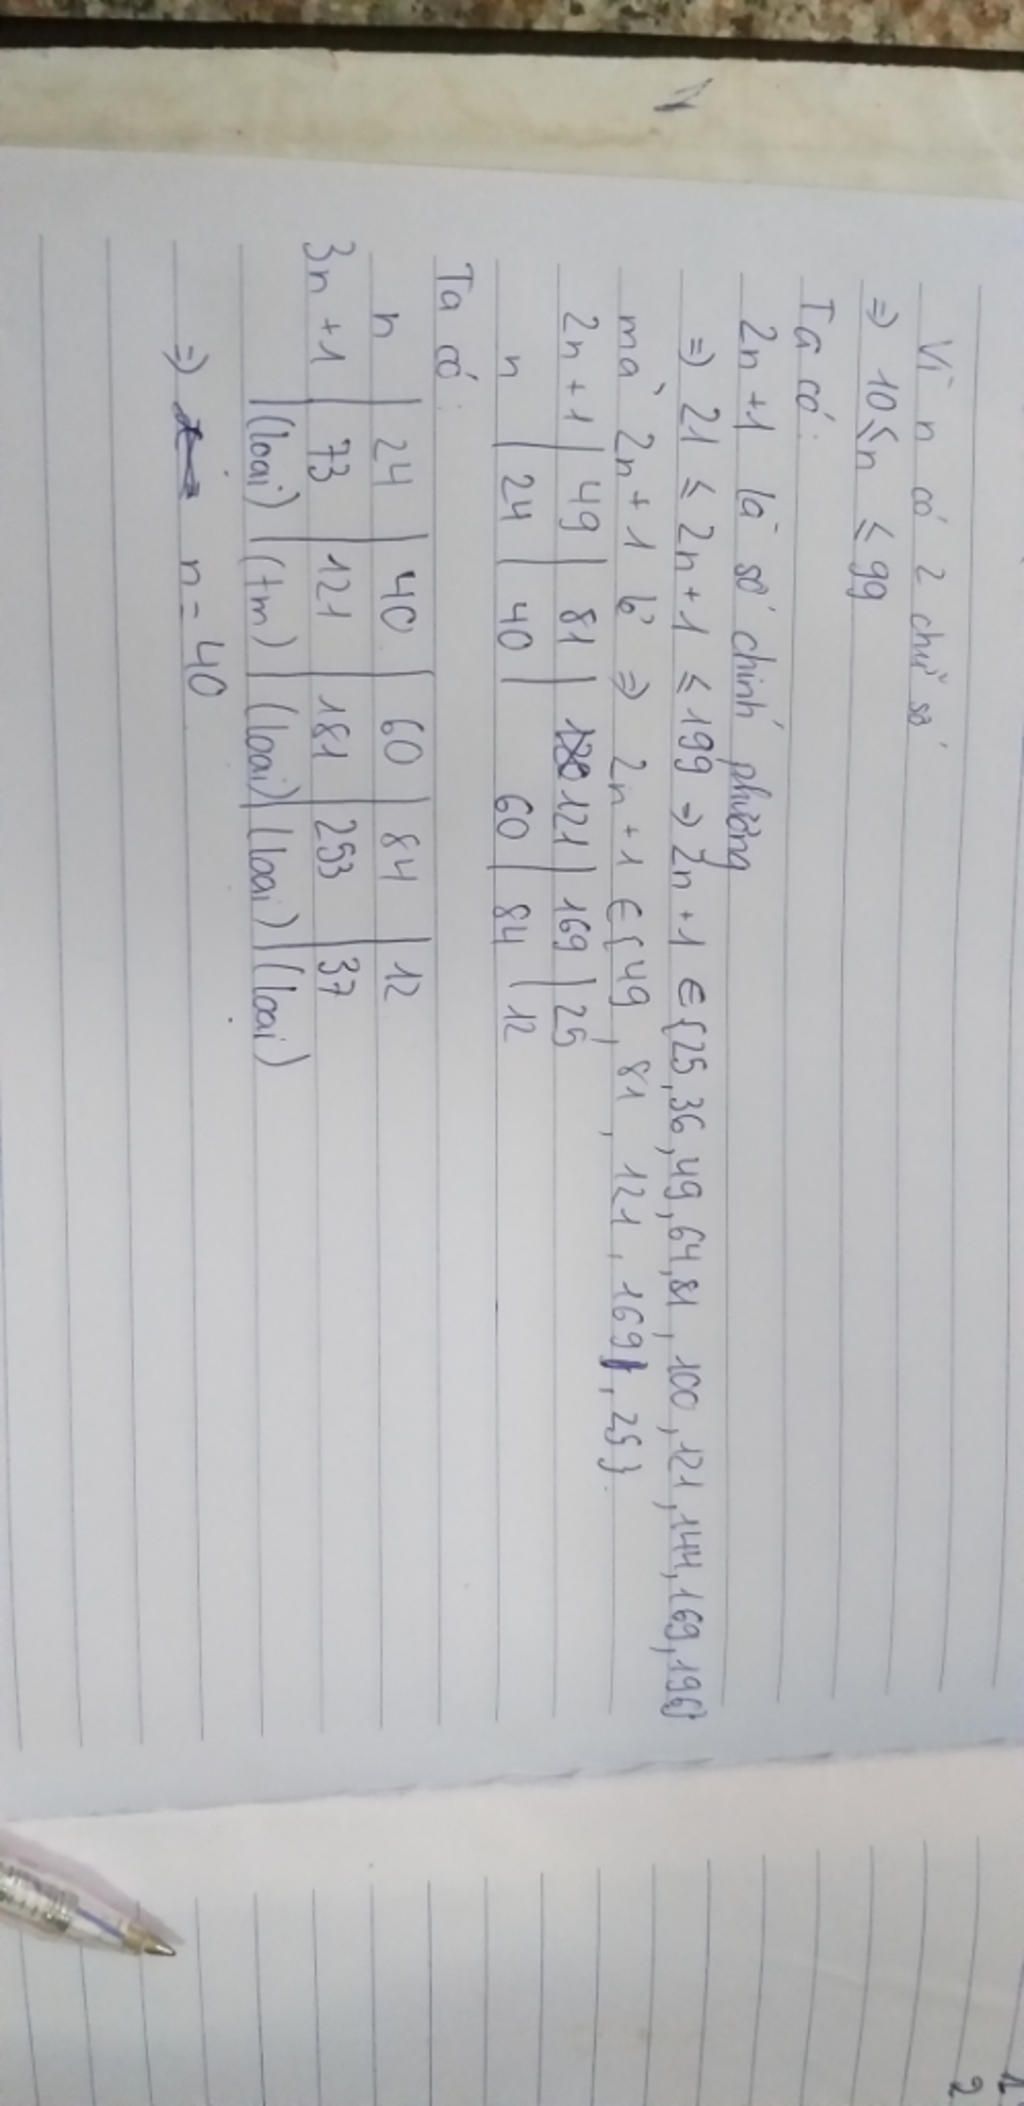 Vì n có 2 chữ số
=> 10 ≤ n ≤ 99
Ta có:
2n +1 là số chính phương
=> 21 ≤ 2n +1 ≤ 199 => 2n +1 ∈ {25, 36, 49, 64, 81, 100, 121, 144, 169, 196}
mà 2n +1 lẻ => 2n +1 ∈ {49, 81, 121, 169, 25}
2n +1 | 49 | 81 | 121 | 169 | 25
n | 24 | 40 | 60 | 84 | 12
Ta có:
n | 24 | 40 | 60 | 84 | 12
3n +1 | 73 | 121 | 181 | 253 | 37
| (loại) | (tm) | (loại) | (loại) | (loại)
=> n = 40
1
2